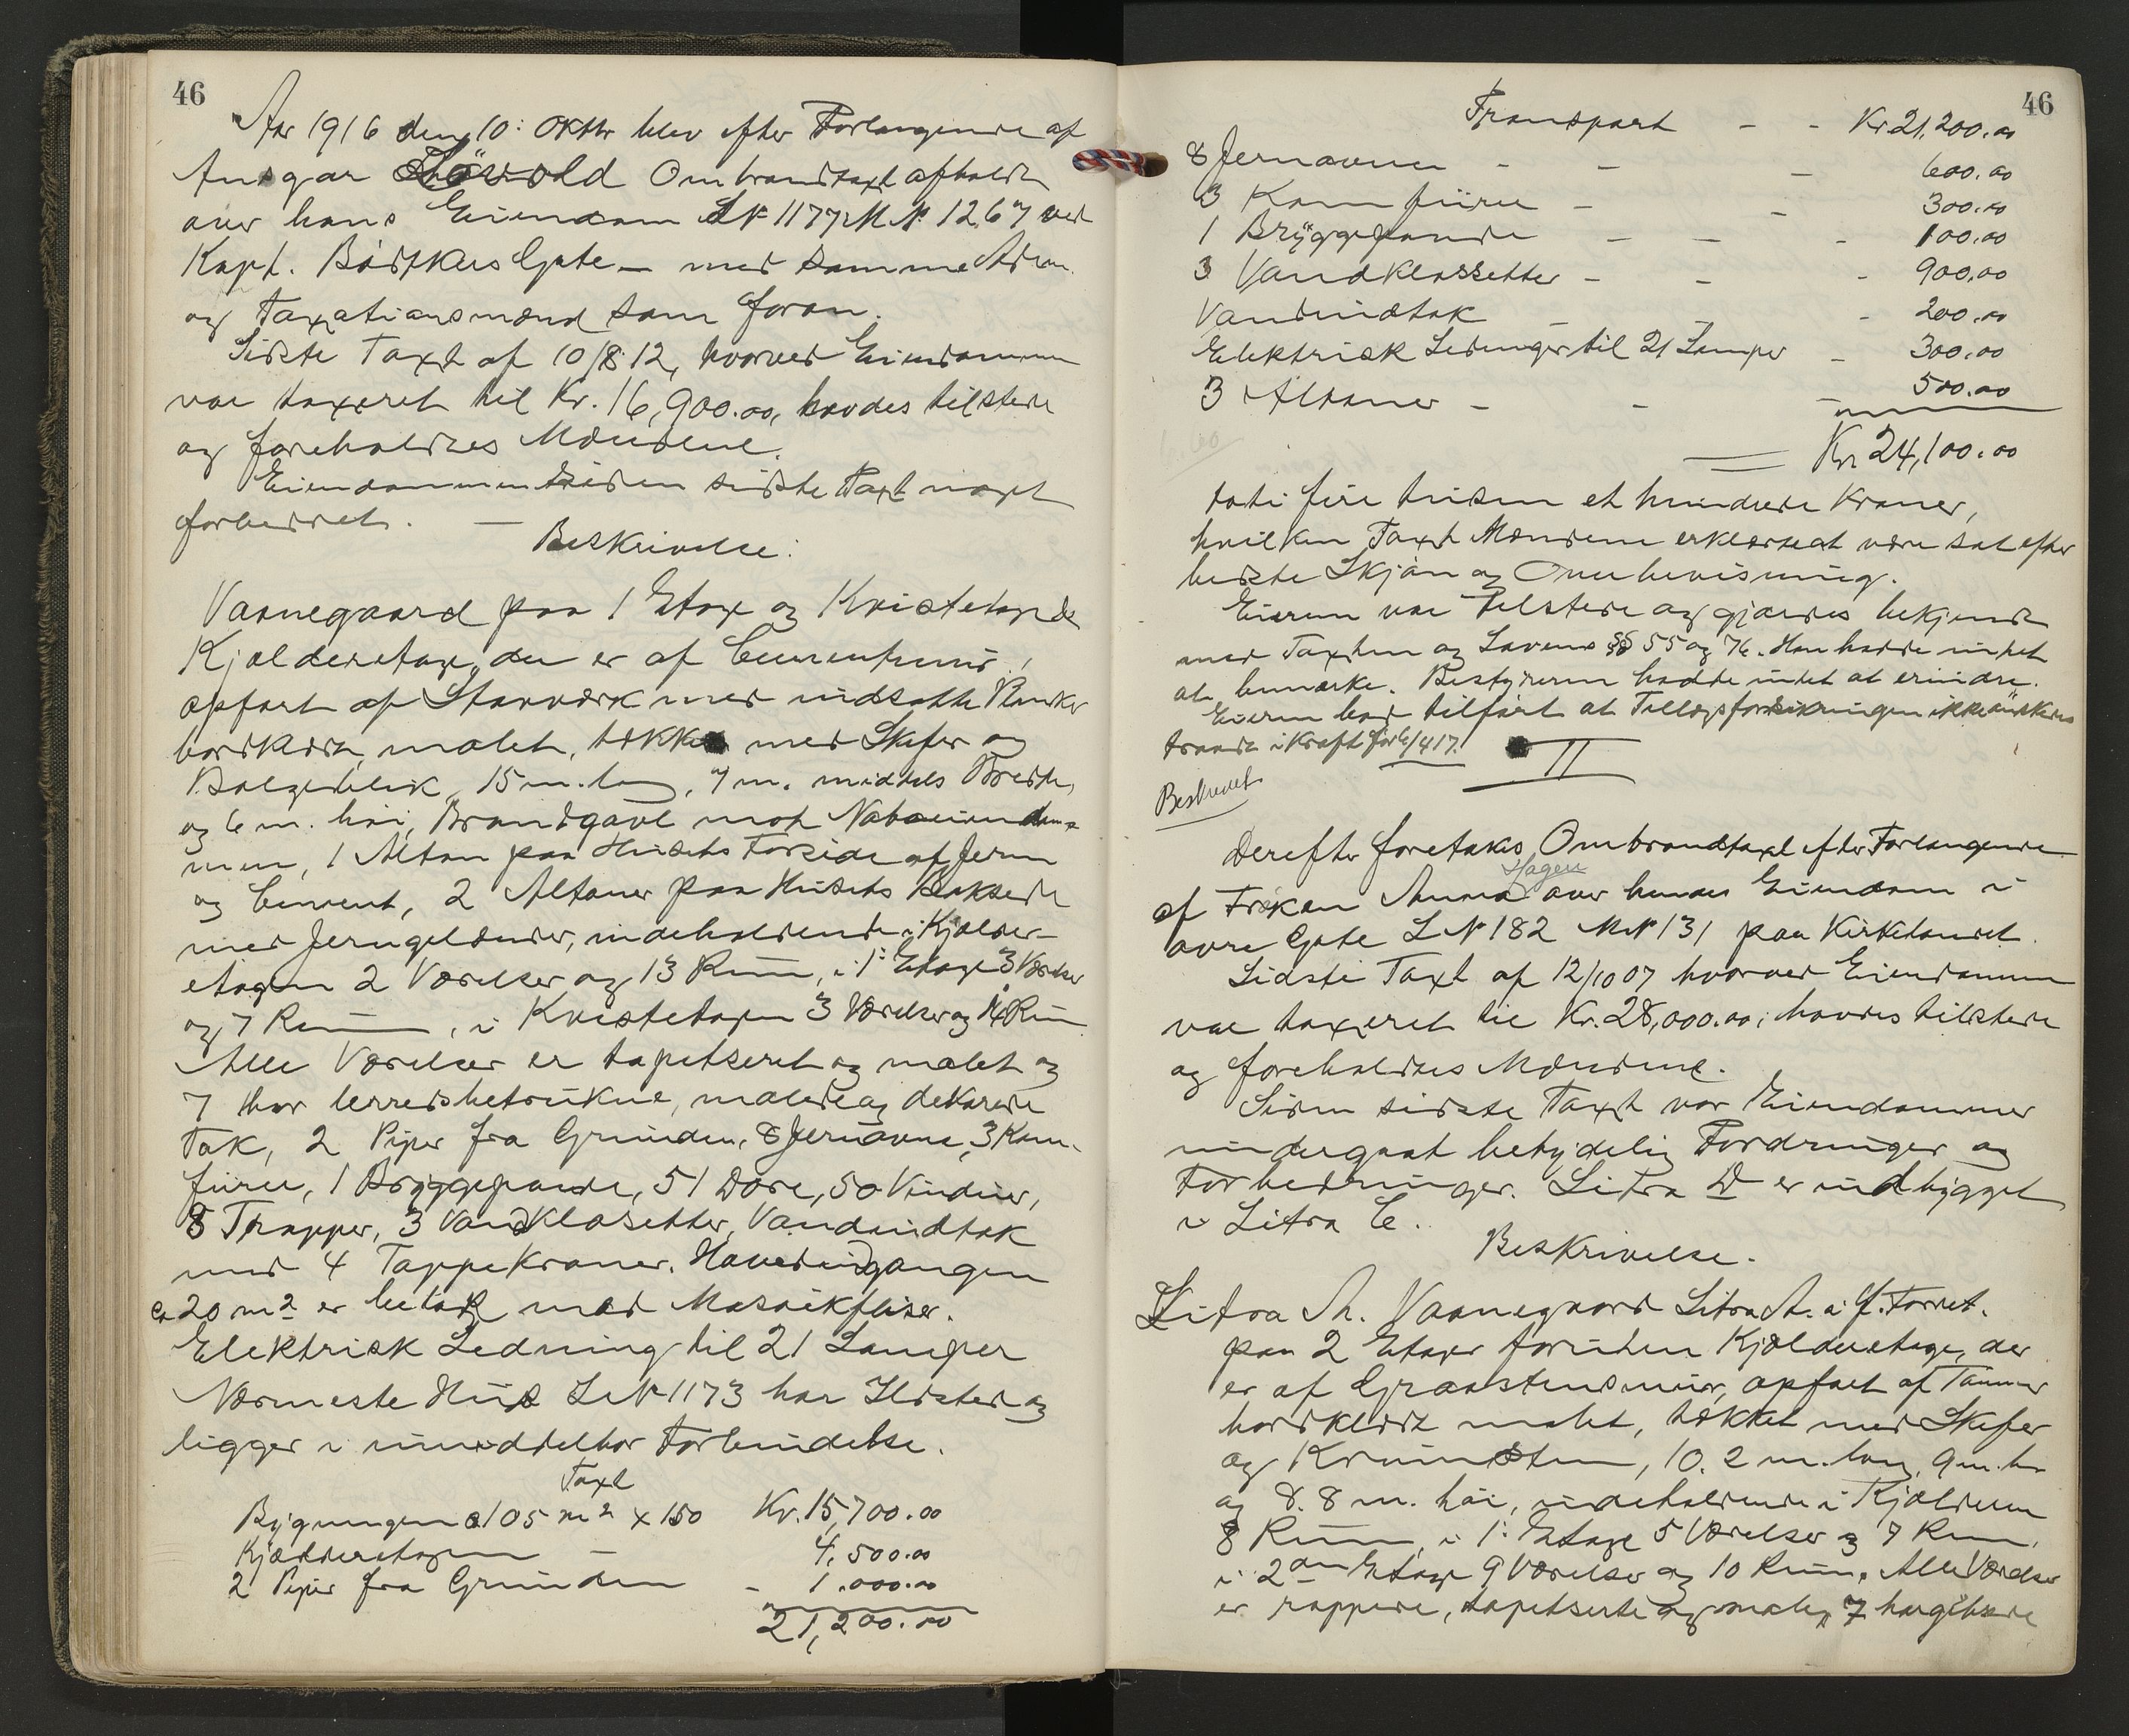 46
Aar 1916 den 10: Oktbr blev efter Forlangende af
Ansgar Hövold Ombrandtaxt afholdt
over hans Eiendom LN 1177 M.N. 1267 ved
Kapt. Bödtkers Gate — med samme Adm.
og Taxationsmænd som foran.
Sidste Taxt af 10/8.12, hvorved Eiendommen
var taxeret til Kr. 16,900.00, havdes tilstede
og foreholdtes Mændene.
Eiendommen siden sidste Taxt noget
forbedret. —
Beskrivelse:
Vaanegaard paa 1 Etage og Kvistetage
Kjælderetage, der er af Cementmur,
opført af Stavværk med indsatte Planker
bordklædt, malet, tækket med Skifer og
Bølgeblik, 15 m. lang, 7 m. middels Bredde,
og 6 m. høi, Brandgavl mot Naboeiendom-
men, 1 Altan paa Husets Forside af Jern
og Cement, 2 Altaner paa Husets Bakside
med Jerngelænder, indeholdende i Kjælder-
etagen 2 Værelser og 13 Rum, i 1: Etage 3 Værelser
og 7 Rum, i Kvistetagen 3 Værelser og Rum
Alle Værelser er tapetseret og malet og
7 har lerredsbetrukne, malede og dekorerede
Tak, 2 Piper fra Grunden, 8 Jernovne, 3 Kom-
fürer, 1 Bryggepande, 51 Döre, 50 Vinduer,
8 Trapper, 3 Vandklosetter, Vandindtak
med 4 Tappekraner. Hovedindgangen
ca 20 m2 er belagt med Mosaikfliser.
Elektrisk Ledning til 21 Lamper
Nærmeste Hus LN 1173 har Ildsted og
ligger i umiddelbar Forbindelse.
Taxt
Bygningen a 105 m2 x 150 Kr. 15,700.00
Kjælderetagen — 4,500.00
2 Piper fra Grunden - 1.000.00
21,200.00
46
Transport - - Kr. 21,200.00
8 Jernovner - - - 600.00
3 Komfürer - - 300.00
1 Bryggepande - - - 100.00
3 Vandklossetter - - - 900.00
Vandindtak - - - 200.00
Elektrisk Ledninger til 21 Lamper - 300.00
3 Altaner - - - 500.00
Kr. 24,100.00
toti fire tusen et hundrede Kroner,
hvilken Taxt Mændene erklærte at være sat efter
bedste Skjön og Overbevisning.
Eieren var tilstede og gjordes bekjendt
med Taxten og Lovens §§ 55 og 76. Han hadde intet
at bemærke. Bestyreren hadde intet at erindre.
Eieren har tilført at Tillægsforsikringen ikke önskes
traadt i Kraft för 1/4 17.
II
Beskrevet
Derefter foretokes Ombrandtaxt efter Forlangende
af Fröken Anna Hagen over hendes Eiendom i
övre Gate LN 182 MN 131 paa Kirkelandet.
Sidste Taxt af 12/10 07 hvorved Eiendommen
var taxeret til Kr. 28,000.00, havdes tilstede
og foreholdtes Mændene.
Siden sidste Taxt var Eiendommen
undergaat betydelig Fordringer og
Forbedringer. Litra D er indbygget
i Litra C.
Beskrivelse.
Litra A. Vaanegaard Litra A. i f. Forret.
paa 2 Etager foruten Kjælderetage, der
er af Graastensmur, opført af Tømmer
bordklædt malet, tækket med Skifer
og Krumsten, 10.2 m. lang, 9 m. br.
og 8.8 m. høi, indeholdende i Kjælderen
8 Rum, i 1: Etage 5 Værelser og 7 Rum,
i 2den Etage 9 Værelser og 10 Rum. Alle Værelser
er rappede, tapetserte og malet, 7 har gibsede